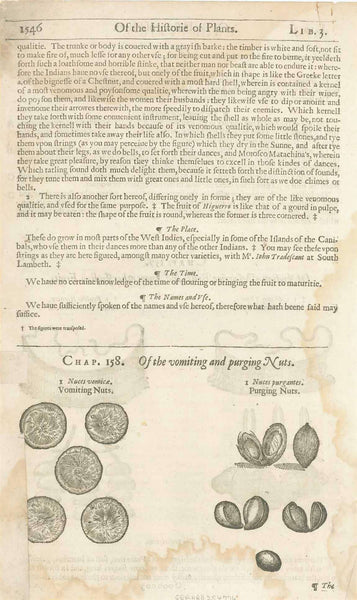 1546 Of the Historie of Plants. LIB. 3.
qualitie. The trunke or body is couered with a grayish barke: the timber is white and soft, not fit
to make fire of, much lesse for any other vse; for being cut and put to the fire to burne, it yeeldeth
forth such a loathsome and horrible stinke, that neither man nor beast are able to endure it: where-
fore the Indians haue no vse thereof, but onely of the fruit, which in shape is like the Greeke letter
of the bignesse of a Chestnut, and couered with a most hard shell, wherein is contained a kernel
of a most venomous and poysonsome qualitie, wherewith the men being angry with their wiues,
do poyson them, and likewise the women their husbands: they likewise vse to dip or anoint and
inuenome their arrowes therewith, the more speedily to dispatch their enemies. Which kernell
they take forth with some conuenient instrument, leauing the shell as whole as may be, not tou-
ching the kernell with their hands because of its venomous qualitie, which would spoile their
hands, and sometimes take away their life also. In which shells they put some little stones, and tye
them vpon strings (as you may perceiue by the figure) which they dry in the Sunne, and after tye
them about their legs, as we do bells, to set forth their dances, and Morosco Matachina's, wherein
they take great pleasure, by reason they thinke themselues to excell in those kindes of dances.
Which ratling sound doth much delight them, because it setteth forth the distinction of sounds,
for they tune them and mix them with great ones and little ones, in such sort as we doe chimes or
bells.
2 There is also another sort hereof, differing onely in forme; they are of the like venomous
qualitie, and vsed for the same purpose. ‡ The fruit of Higuerea is like that of a gourd in pulpe,
and it may be eaten: the shape of the fruit is round, whereas the former is three cornered. ‡
¶ The Place.
These do grow in most parts of the West Indies, especially in some of the Islands of the Cani-
bals, who vse them in their dances more than any of the other Indians. ‡ You may see these vpon
strings as they are here figured, amongst many other varieties, with Mr. Iohn Tradescant at South
Lambeth. ‡
¶ The Time.
We haue no certaine knowledge of the time of flouring or bringing the fruit to maturitie.
¶ The Names and Vse.
We haue sufficiently spoken of the names and vse hereof, therefore what hath beene said may
suffice.
† The figures were transposed.
CHAP. 158. Of the vomiting and purging Nuts.
1 Nuces vomicæ.
Vomiting Nuts.
2 Nuces purgantes.
Purging Nuts.
¶ The